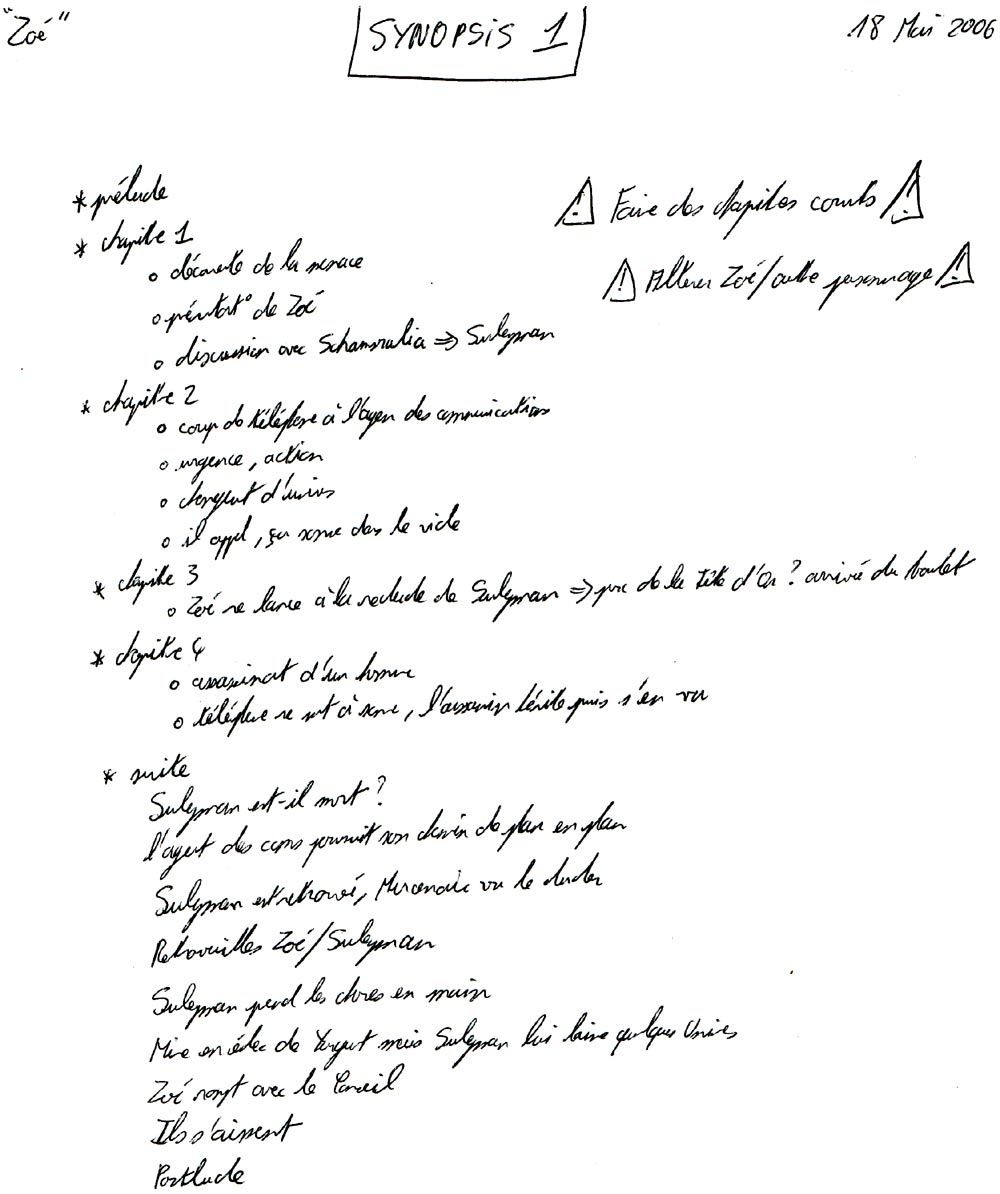 "Zoé"
SYNOPSIS 1
18 Mai 2006
* prélude
⚠ Faire des chapitres courts ⚠
* chapitre 1
o découverte de la menace
⚠ Alterner Zoé/autre personnage ⚠
o présentat° de Zoé
o discussion avec Schammralia => Suleyman
* chapitre 2
o coup de téléphone à l'agen des communications
o urgence, action
o changeut d'univs
o il appl, ça sonne dans le vide
* chapitre 3
o Zoé se lance à la recherche de Suleyman => parc de la tête d'Or ? arrivé du boulet
* chapitre 4
o assassinat d'un homme
o téléphone se met à sonner, l'assassin hésite puis s'en va
* suite
Suleyman est-il mort ?
l'agent des coms poursuit son chemin de plan en plan
Suleyman est retrouvé, Mercenaire va le chercher
Retrouvailles Zoé/Suleyman
Suleyman prend les choses en main
Mise en échec de mais Suleyman lui laisse quelques Univers
Zoé rompt avec le Conseil
Ils s'aiment
Postlude